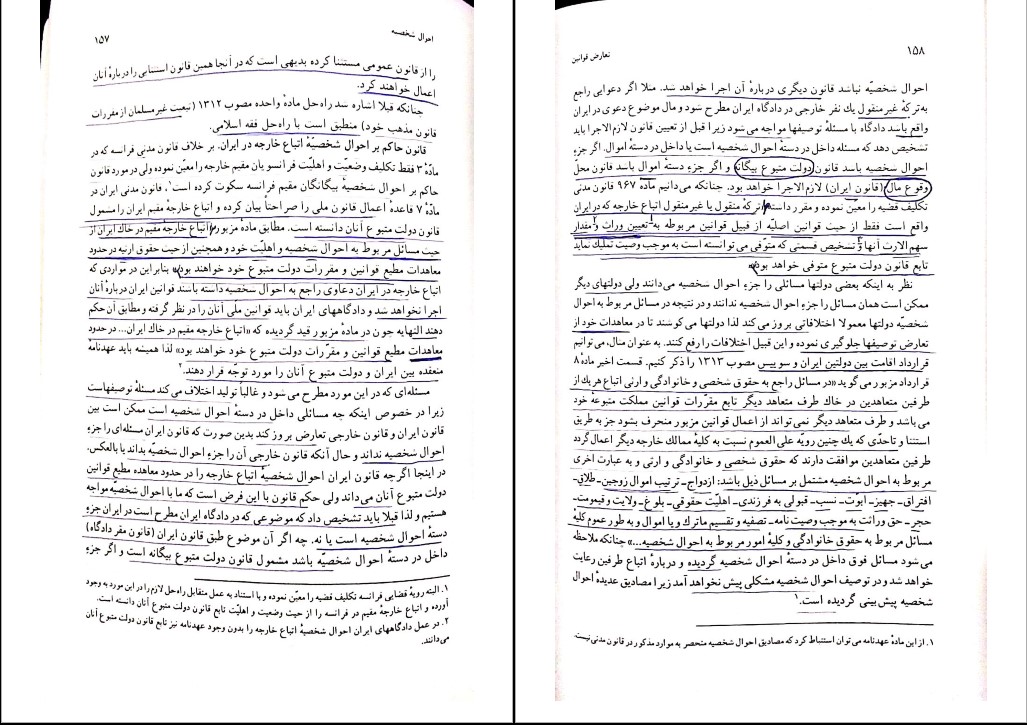 احوال شخصیه
۱۵۷
را از قانون عمومی مستثنا کرده بدیهی است که در آنجا همین قانون استثنایی را دربارهٔ آنان
اعمال خواهند کرد.
چنانکه قبلا اشاره شد راه‌حل مادهٔ واحده مصوب ۱۳۱۲ (تبعیت غیر مسلمان از مقررات
قانون مذهب خود) منطبق است با راه‌حل فقه اسلامی.
قانون حاکم بر احوال شخصیّهٔ اتباع خارجه در ایران. بر خلاف قانون مدنی فرانسه که در
مادّهٔ ۳ فقط تکلیف وضعیّت و اهلیّت فرانسویان مقیم خارجه را معیّن نموده ولی در مورد قانون
حاکم بر احوال شخصیهٔ بیگانگان مقیم فرانسه سکوت کرده است۱، قانون مدنی ایران در
مادّهٔ ۷ قاعدهٔ اعمال قانون ملی را صراحتاً بیان کرده و اتباع خارجهٔ مقیم ایران را مشمول
قانون دولت متبوع آنان دانسته است. مطابق مادهٔ مزبور «اتباع خارجه مقیم در خاك ایران از
حیث مسائل مربوط به احوال شخصیه و اهلیّت خود و همچنین از حیث حقوق ارثیه در حدود
معاهدات مطیع قوانین و مقررات دولت متبوع خود خواهند بود» بنابراین در مواردی که
اتباع خارجه در ایران دعاوی راجع به احوال شخصیه داشته باشند قوانین ایران دربارهٔ آنان
اجرا نخواهد شد و دادگاههای ایران باید قوانین ملی آنان را در نظر گرفته و مطابق آن حکم
دهند النهایه چون در مادهٔ مزبور قید گردیده که «اتباع خارجه مقیم در خاك ایران... در حدود
معاهدات مطیع قوانین و مقرّرات دولت متبوع خود خواهند بود» لذا همیشه باید عهدنامهٔ
منعقده بین ایران و دولت متبوع آنان را مورد توجّه قرار دهند.۲
مسئله‌ای که در این مورد مطرح می‌شود و غالباً تولید اختلاف می‌کند مسئلهٔ توصیفهاست
زیرا در خصوص اینکه چه مسائلی داخل در دستهٔ احوال شخصیه است ممکن است بین
قانون ایران و قانون خارجی تعارض بروز کند بدین صورت که قانون ایران مسئله‌ای را جزءِ
احوال شخصیّه نداند و حال آنکه قانون خارجی آن را جزءِ احوال شخصیّه بداند یا بالعکس.
در اینجا اگرچه قانون ایران احوال شخصیهٔ اتباع خارجه را در حدود معاهده مطیع قوانین
دولت متبوع آنان می‌داند ولی حکم قانون با این فرض است که ما با احوال شخصیّه مواجه
هستیم و لذا قبلا باید تشخیص داد که موضوعی که در دادگاه ایران مطرح است در ایران جزءِ
دستهٔ احوال شخصیه است یا نه. چه اگر آن موضوع طبق قانون ایران (قانون مقر دادگاه)
داخل در دستهٔ احوال شخصیّه باشد مشمول قانون دولت متبوع بیگانه است و اگر جزءِ
۱. البته رویهٔ قضایی فرانسه تکلیف قضیه را معیّن نموده و با استناد به عمل متقابل راه‌حل لازم را در این مورد به وجود
آورده و اتباع خارجهٔ مقیم در فرانسه را از حیث وضعیت و اهلیّت تابع قانون دولت متبوع آنان دانسته است.
۲. در عمل دادگاههای ایران احوال شخصیهٔ اتباع خارجه را بدون وجود عهدنامه نیز تابع قانون دولت متبوع آنان
می‌دانند.
۱۵۸
تعارض قوانین
احوال شخصیّه نباشد قانون دیگری دربارهٔ آن اجرا خواهد شد. مثلا اگر دعوایی راجع
به ترکهٔ غیرمنقول یك نفر خارجی در دادگاه ایران مطرح شود و مال موضوع دعوی در ایران
واقع باشد دادگاه با مسئلهٔ توصیفها مواجه می‌شود زیرا قبل از تعیین قانون لازم الاجرا باید
تشخیص دهد که مسئله داخل در دستهٔ احوال شخصیه است یا داخل در دستهٔ اموال. اگر جزءِ
احوال شخصیه باشد قانون دولت متبوع بیگانه و اگر جزءِ دستهٔ اموال باشد قانون محلّ
وقوع مال (قانون ایران) لازم الاجرا خواهد بود. چنانکه می‌دانیم مادّه ۹۶۷ قانون مدنی
تکلیف قضیه را معیّن نموده و مقرر داشته «ترکهٔ منقول یا غیر منقول اتباع خارجه که در ایران
واقع است فقط از حیث قوانین اصلیّه از قبیل قوانین مربوطه به تعیین وراث و مقدار
سهم‌الارث آنها و تشخیص قسمتی که متوفّی می‌توانسته است به موجب وصیت تملیك نماید
تابع قانون دولت متبوع متوفی خواهد بود»
نظر به اینکه بعضی دولتها مسائلی را جزءِ احوال شخصیه می‌دانند ولی دولتهای دیگر
ممکن است همان مسائل را جزءِ احوال شخصیه ندانند و در نتیجه در مسائل مربوط به احوال
شخصیّه دولتها معمولا اختلافاتی بروز می‌کند لذا دولتها می‌کوشند تا در معاهدات خود از
تعارض توصیفها جلوگیری نموده و این قبیل اختلافات را رفع کنند. به عنوان مثال، می‌توانیم
قرارداد اقامت بین دولتین ایران و سویس مصوب ۱۳۱۳ را ذکر کنیم. قسمت اخیر مادهٔ ۸
قرارداد مزبور می‌گوید «در مسائل راجع به حقوق شخصی و خانوادگی و ارثی اتباع هر یك از
طرفین متعاهدین در خاك طرف متعاهد دیگر تابع مقرّرات قوانین مملکت متبوعه خود
می‌باشد و طرف متعاهد دیگر نمی‌تواند از اعمال قوانین مزبور منحرف بشود جز به طریق
استثنا و تا حدّی که یك چنین رویّه علی العموم نسبت به کلیهٔ ممالك خارجه دیگر اعمال گردد
طرفین متعاهدین موافقت دارند که حقوق شخصی و خانوادگی و ارثی و به عبارت اخری
مربوط به احوال شخصیه مشتمل بر مسائل ذیل باشد: ازدواج ـ ترتیب اموال زوجین ـ طلاق ـ
افتراق ـ جهیز ـ ابوّت ـ نسب ـ قبولی به فرزندی ـ اهلیّت حقوقی ـ بلوغ ـ ولایت و قیمومت ـ
حجر ـ حق وراثت به موجب وصیت نامه ـ تصفیه و تقسیم ماترك و یا اموال و به طور عموم کلیهٔ
مسائل مربوط به حقوق خانوادگی و کلیهٔ امور مربوط به احوال شخصیه...» چنانکه ملاحظه
می‌شود مسائل فوق داخل در دستهٔ احوال شخصیه گردیده و دربارهٔ اتباع طرفین رعایت
خواهد شد و در توصیف احوال شخصیه مشکلی پیش نخواهد آمد زیرا مصادیق عدیدهٔ احوال
شخصیه پیش‌بینی گردیده است.۱
۱. از این مادهٔ عهدنامه می‌توان استنباط کرد که مصادیق احوال شخصیه منحصر به موارد مذکور در قانون مدنی نیست.